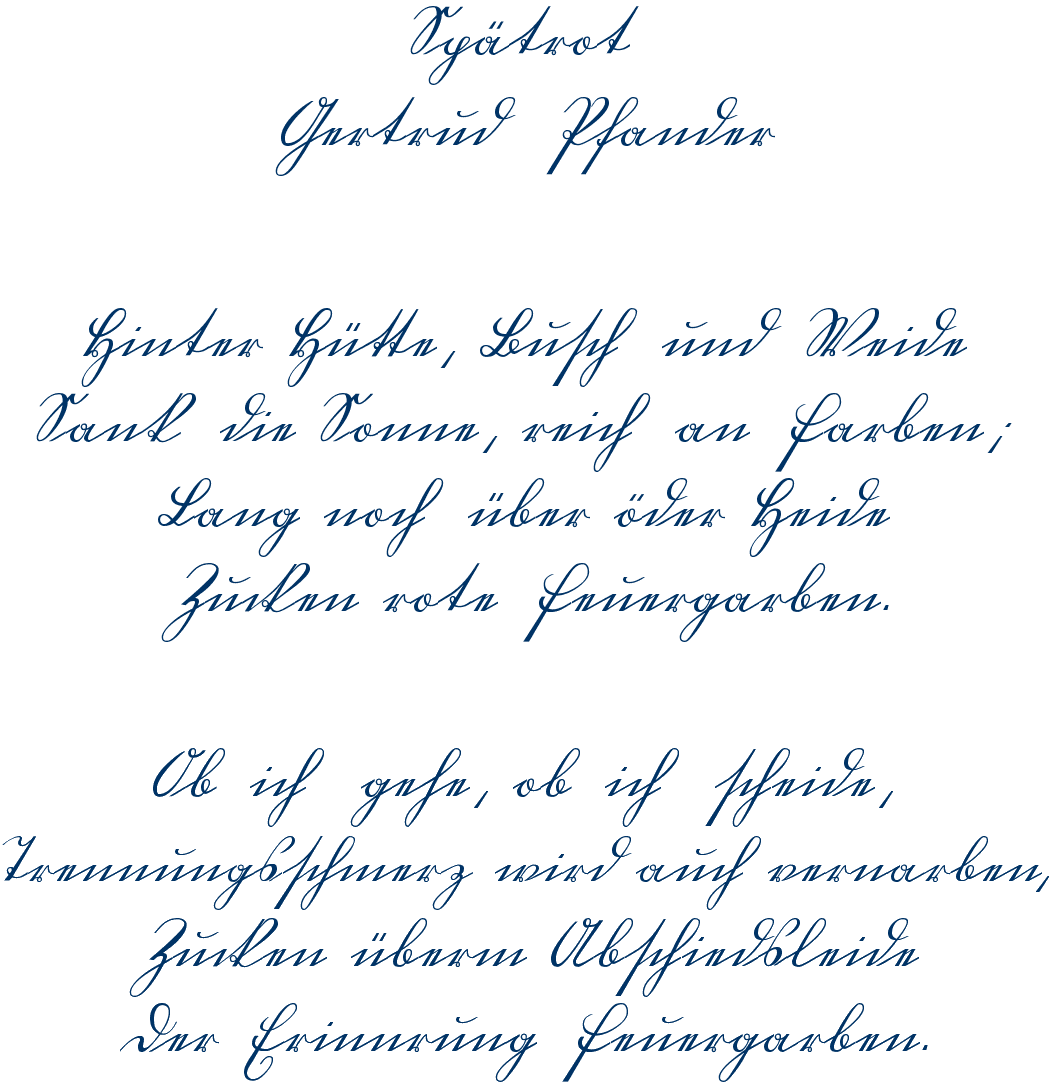 Spätrot
Gertrud Pfander
Hinter Hütte, Busch und Weide
Sank die Sonne, reich an Farben;
Lang noch über öder Heide
Zucken rote Feuergarben.
Ob ich gehe, ob ich scheide,
Trennungsschmerz wird auch vernarben,
Zucken überm Abschiedsleide
Der Erinnrung Feuergarben.